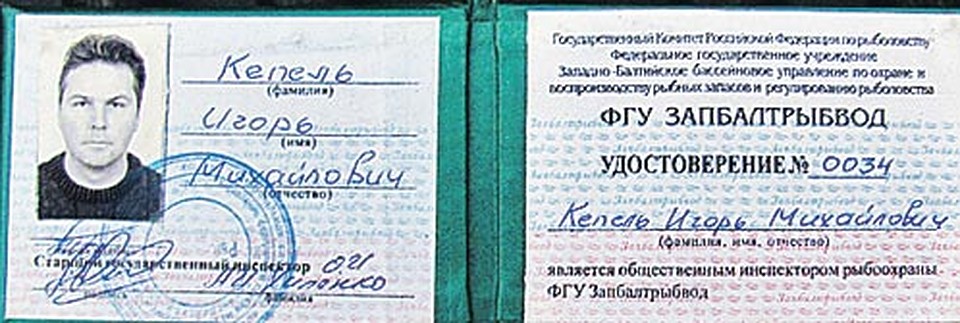 Кепель
(фамилия)
Игорь
(имя)
Михайлович
(отчество)
Старший государственный инспектор
фамилия
Государственный Комитет Российской Федерации по рыболовству
Федеральное государственное учреждение
Западно-Балтийское бассейновое управление по охране и
воспроизводству рыбных запасов и регулированию рыболовства
ФГУ ЗАПБАЛТРЫБВОД
УДОСТОВЕРЕНИЕ № 0034
Кепель Игорь Михайлович
(фамилия, имя, отчество)
является общественным инспектором рыбоохраны
ФГУ Запбалтрыбвод